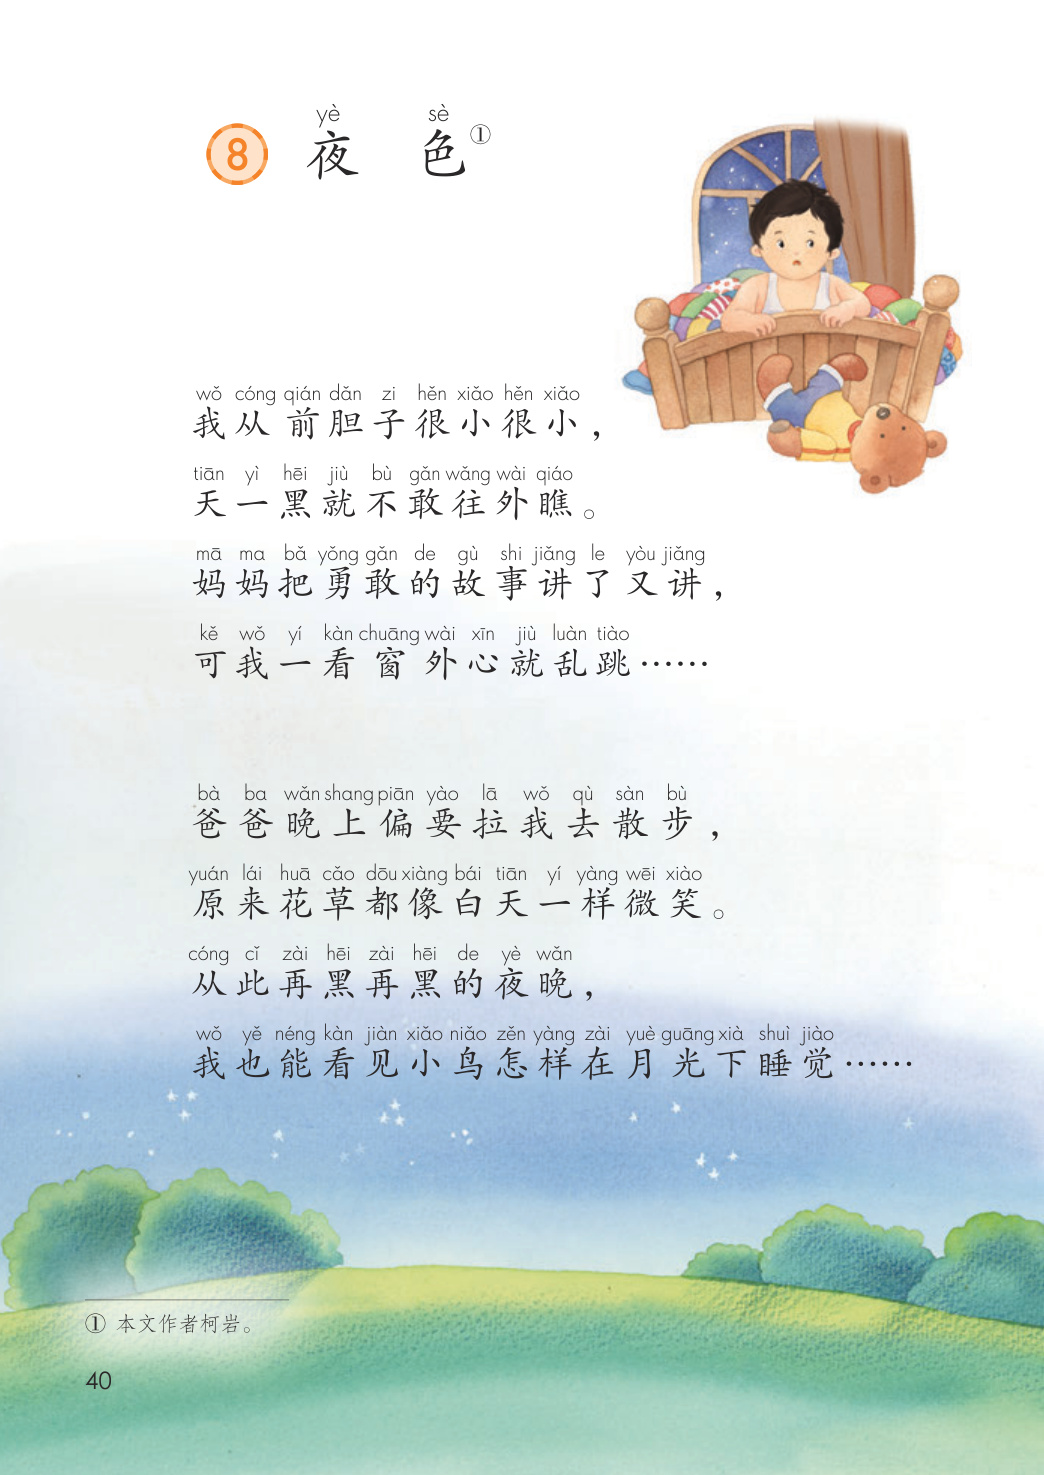 yè sè
8 夜 色①
wǒ cóng qián dǎn zi hěn xiǎo hěn xiǎo
我从前胆子很小很小，
tiān yì hēi jiù bù gǎn wǎng wài qiáo
天一黑就不敢往外瞧。
mā ma bǎ yǒng gǎn de gù shi jiǎng le yòu jiǎng
妈妈把勇敢的故事讲了又讲，
kě wǒ yí kàn chuāng wài xīn jiù luàn tiào
可我一看窗外心就乱跳……
bà ba wǎn shang piān yào lā wǒ qù sàn bù
爸爸晚上偏要拉我去散步，
yuán lái huā cǎo dōu xiàng bái tiān yí yàng wēi xiào
原来花草都像白天一样微笑。
cóng cǐ zài hēi zài hēi de yè wǎn
从此再黑再黑的夜晚，
wǒ yě néng kàn jiàn xiǎo niǎo zěn yàng zài yuè guāng xià shuì jiào
我也能看见小鸟怎样在月光下睡觉……
① 本文作者柯岩。
40